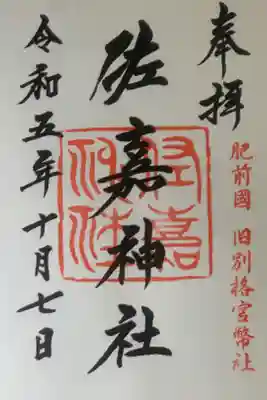 奉拝
肥前國 旧別格官幣社
佐嘉神社
令和五年十月七日